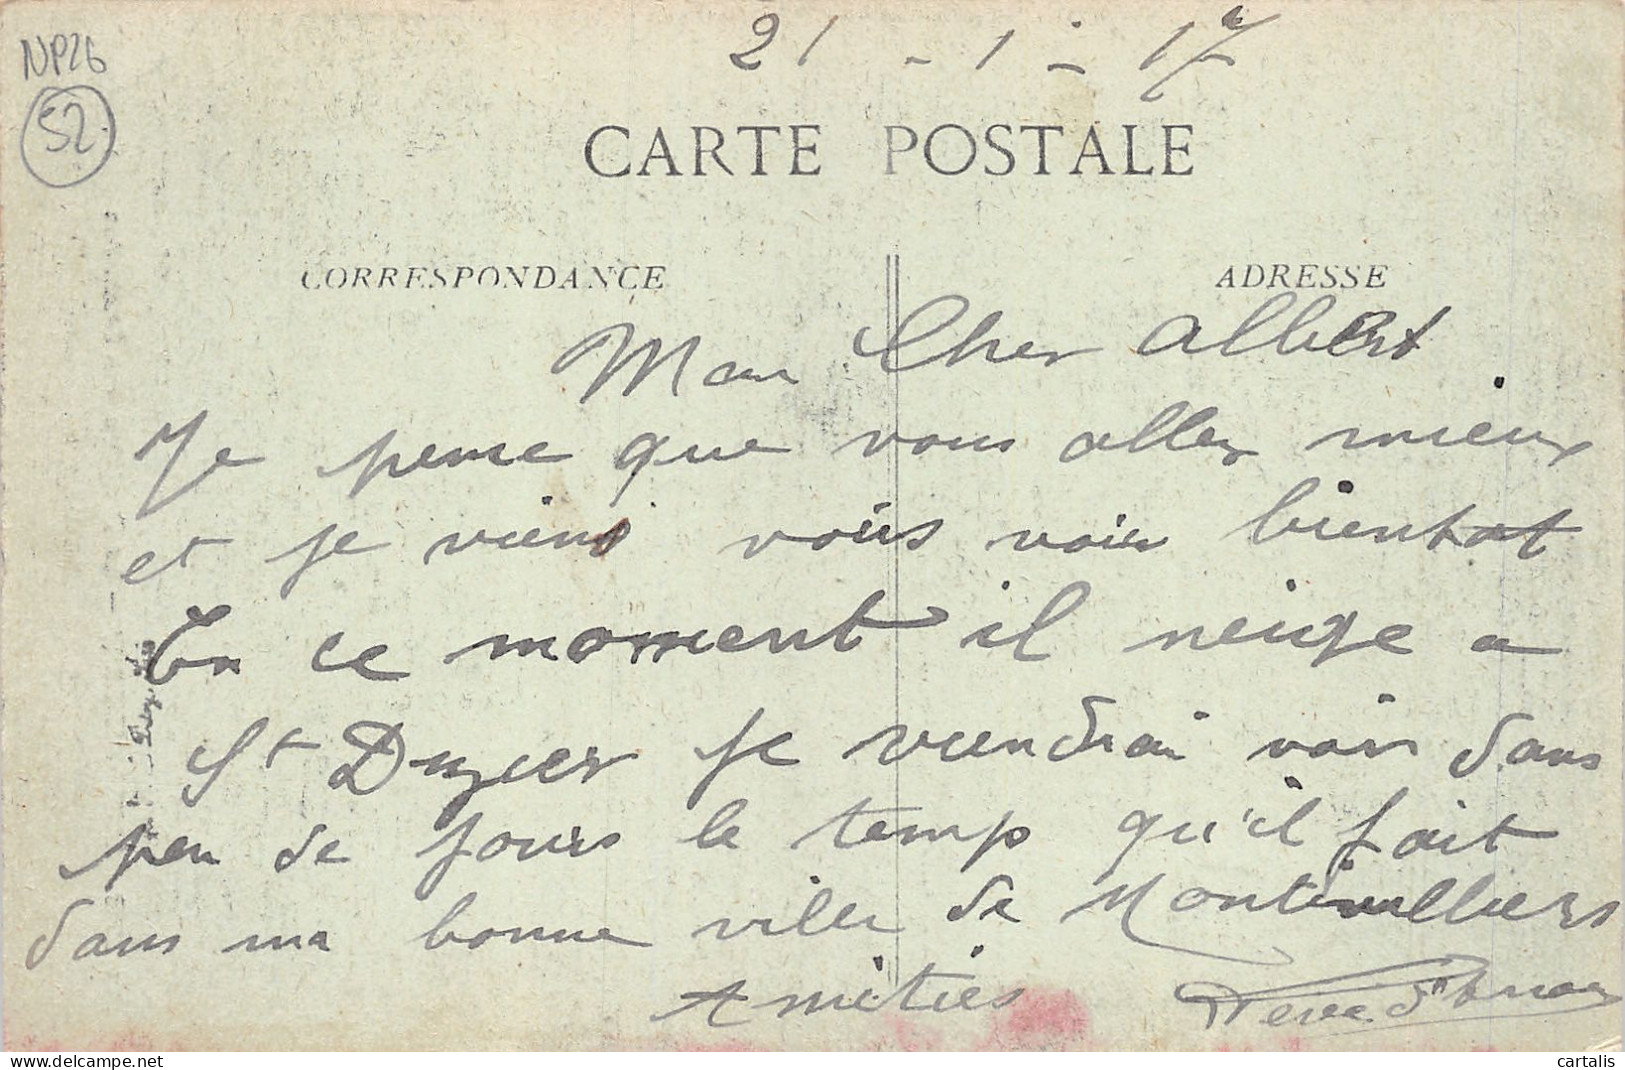 NP26
52
21 - 1 - 17
CARTE POSTALE
CORRESPONDANCE
ADRESSE
Mon Cher Albert
Je pense que vous allez mieux
et je viens vous voir bientot
En ce moment il neige a
St Dizier je viendrai voir dans
peu de jours le temp qu'il fait
dans ma bonne ville de Montivilliers
Amitiés
cartalis